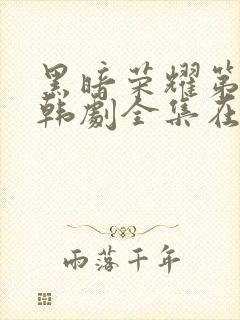 黑暗荣耀第
韩劇全集在
雨落千年